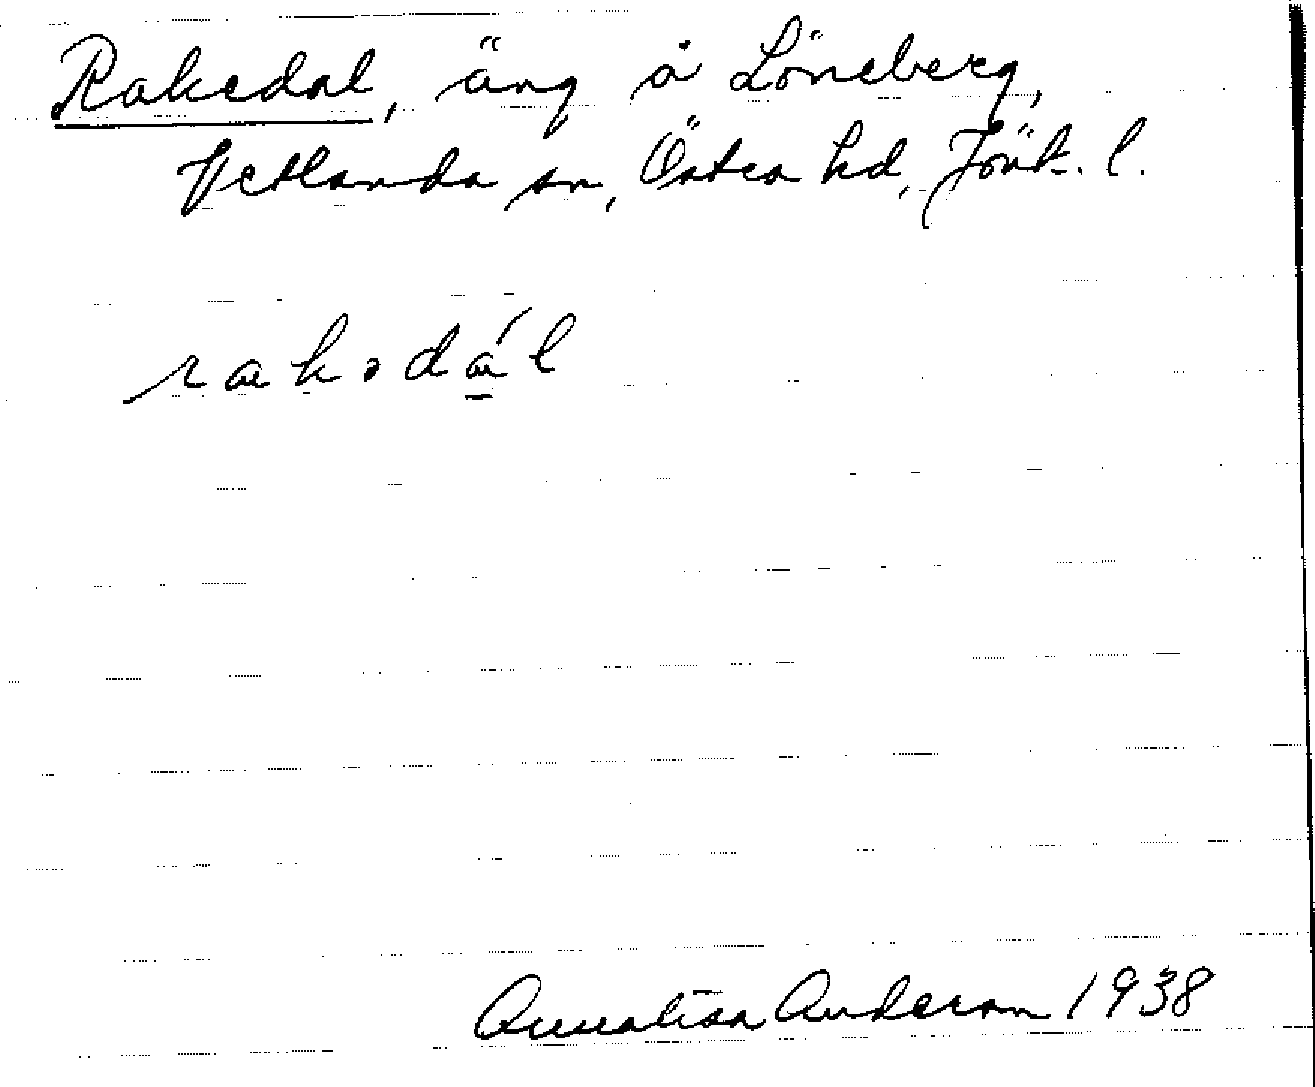 Rakedal, äng å Löneberg,
Vetlanda sn, Östra hd, Jönk. l.
rakədál
Annalisa Anderson 1938